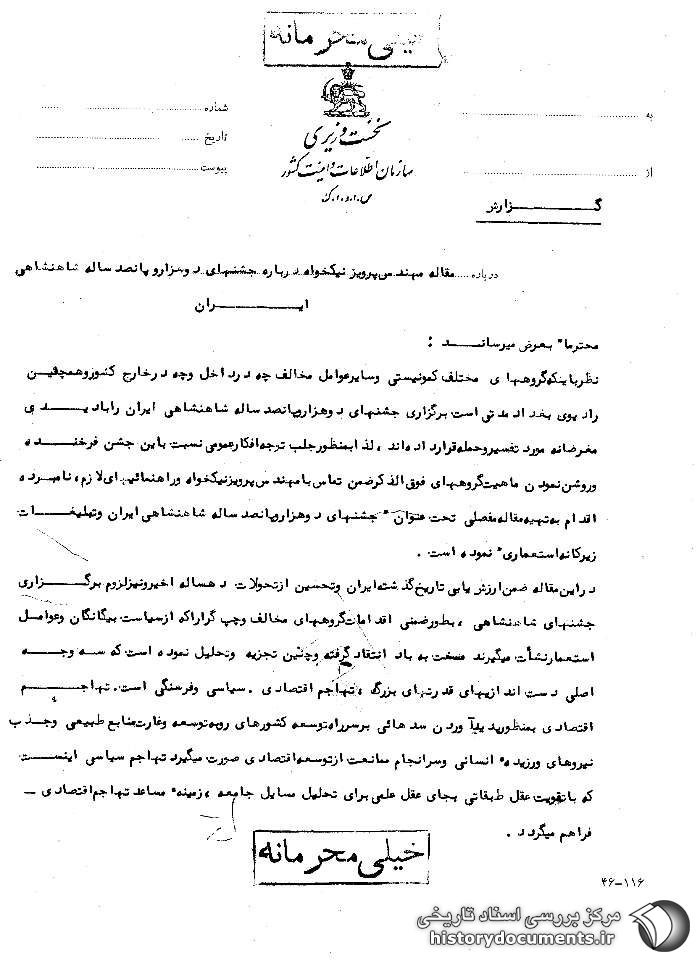 خیلی محرمانه
شماره
به
نخست وزیری
تاریخ
سازمان اطلاعات و امنیت کشور
پیوست
از
س.ا.و.ا.ک
گزارش
درباره ..... مقاله مهندس پرویز نیکخواه درباره جشنهای دوهزار و پانصد ساله شاهنشاهی
ایران
محترما" بعرض میرساند :
نظر باینکه گروههای مختلف کمونیستی و سایر عوامل مخالف چه در داخل و چه در خارج کشور و همچنین
رادیوی بغداد مدتی است برگزاری جشنهای دوهزار و پانصد ساله شاهنشاهی ایران را با دیدی
مغرضانه مورد تفسیر و حمله قرار داده اند ، لذا بمنظور جلب توجه افکار عمومی نسبت باین جشن فرخنده
و روشن نمودن ماهیت گروههای فوق الذکر ضمن تماس با مهندس پرویز نیکخواه و راهنمائیهای لازم ، نامبرده
اقدام به تهیه مقاله مفصلی تحت عنوان " جشنهای دوهزار و پانصد ساله شاهنشاهی ایران و تبلیغات
زیرکانه استعماری " نموده است .
در این مقاله ضمن ارزش یابی تاریخ گذشته ایران و تحسین از تحولات دهساله اخیر و نیز لزوم برگزاری
جشنهای شاهنشاهی ، بطور ضمنی اقدامات گروههای مخالف و چپ گرا را که از سیاست بیگانگان و عوامل
استعمار نشأت میگیرند سخت به باد انتقاد گرفته و چنین تجزیه و تحلیل نموده است که سه وجه
اصلی دست اندازیهای قدرتهای بزرگ ، تهاجم اقتصادی ، سیاسی و فرهنگی است . تهاجم
اقتصادی بمنظور پدید آوردن سدهائی بر سر راه توسعه کشورهای رو به توسعه و غارت منابع طبیعی و جذب
نیروهای ورزیده انسانی و سرانجام ممانعت از توسعه اقتصادی صورت میگیرد تهاجم سیاسی اینست
که با تقویت عقل طبقاتی بجای عقل علمی برای تحلیل مسایل جامعه ، زمینه مساعد تهاجم اقتصادی –
فراهم میگردد .
خیلی محرمانه
۴۶-۱۱۶
مرکز بررسی اسناد تاریخی
historydocuments.ir